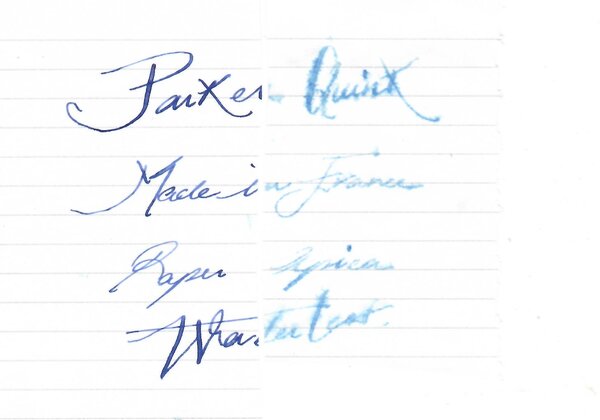 Parker Quink
Made in France
Paper Apica
Water test.